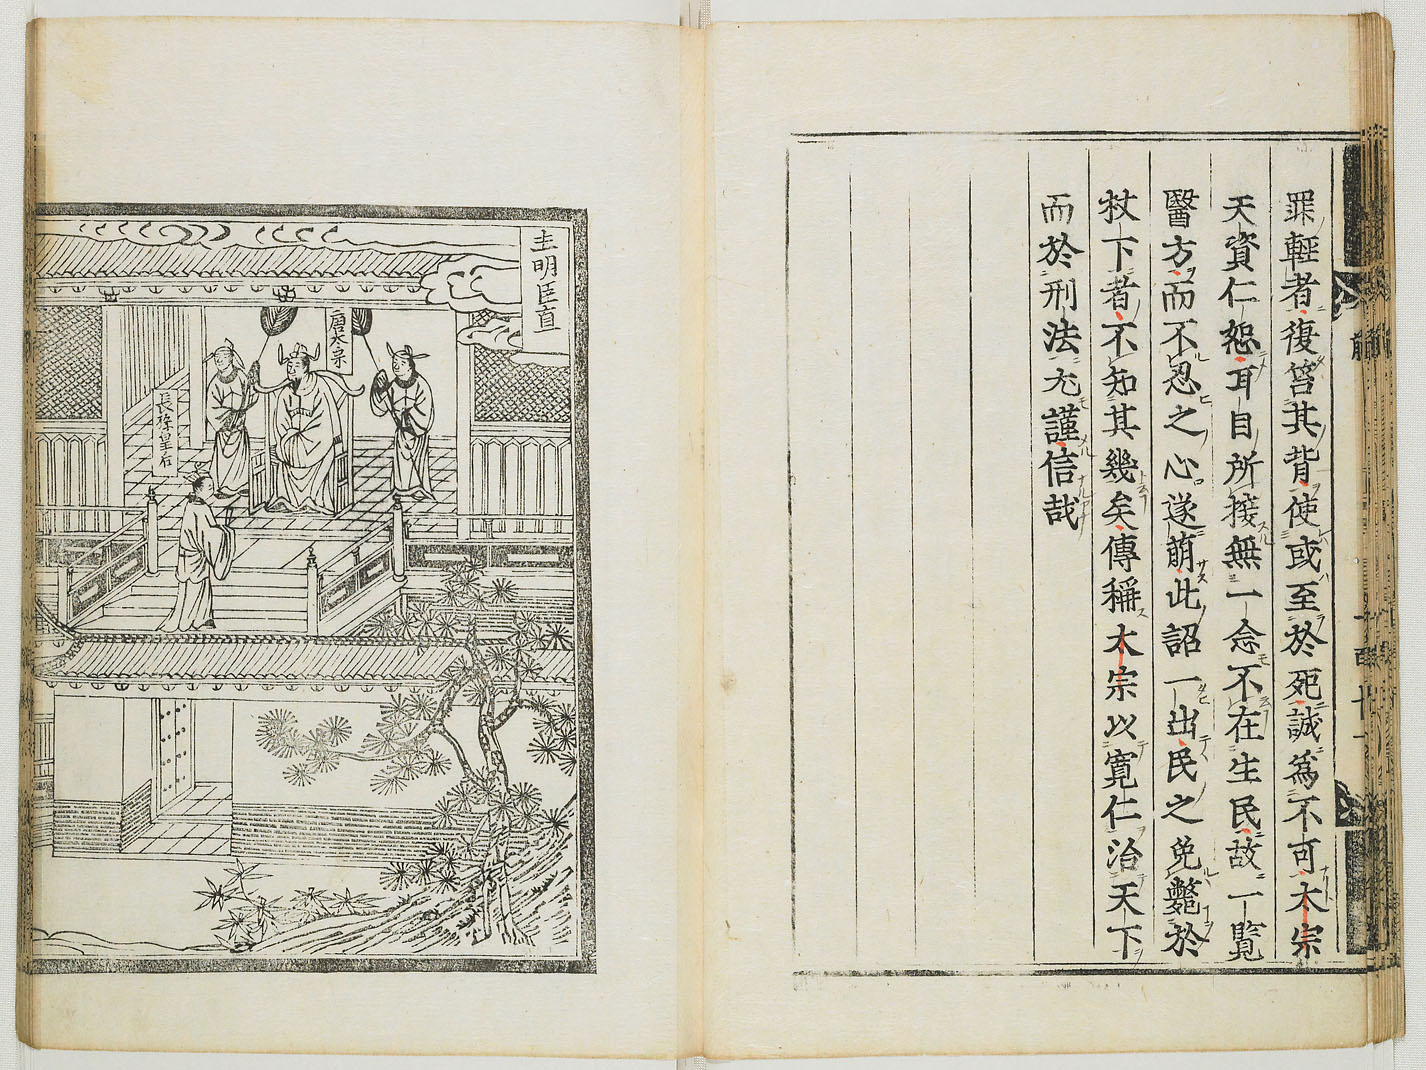 罪輕者復笞其背使或至於死誠爲不可太宗
天資仁恕耳目所接無一念不在生民故一覽
醫方而不忍之心遂萌此詔一出民之免斃於
杖下者不知其幾矣傳稱太宗以寬仁治天下
而於刑法尤謹信哉
主明臣直
唐太宗
長孫皇后